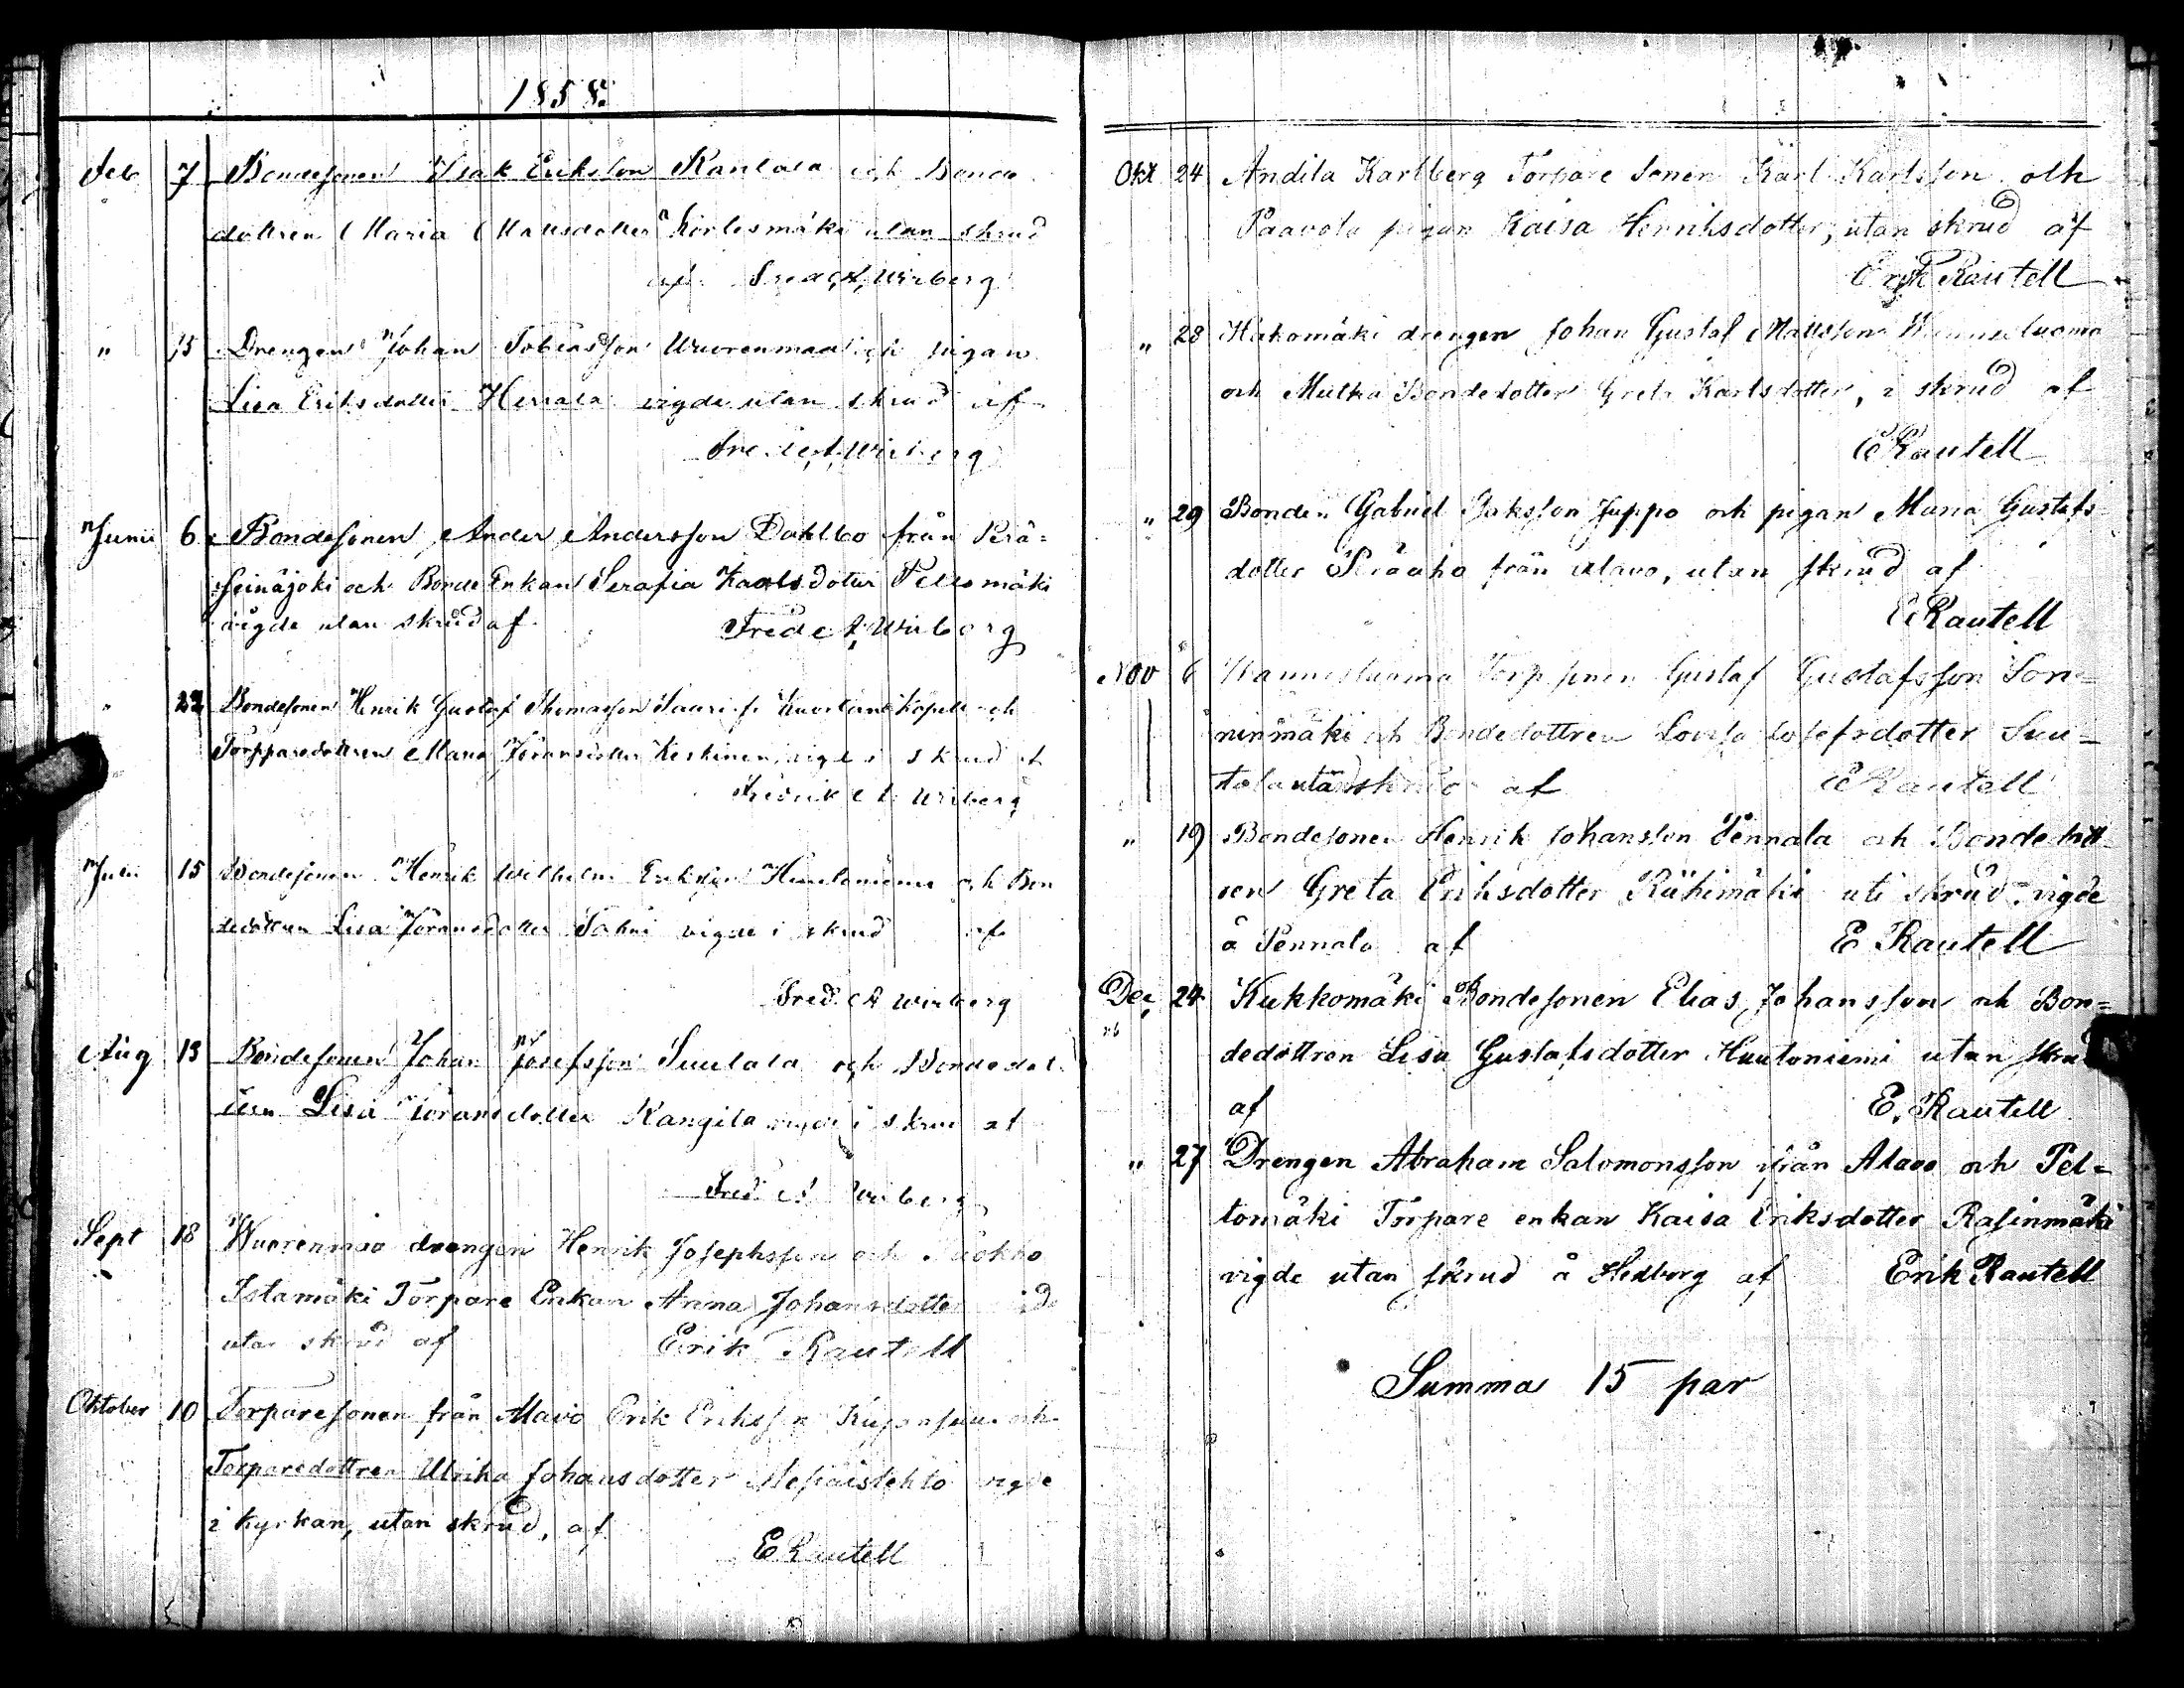 1858.
Feb 7 Bondesonen Isak Eriksson Rantala och Bonde
dottren Maria Mattsdotter utan skrud
af Fred. A. Wirberg
" 15 Drengen Johan Tobiasson Wuorenmaa och pigan
Lisa Eriksdotter Herrala vigde utan skrud af
Fred. A. Wirberg
Junii 6 Bondesonen Ander Andersson Dahlbo från Perä=
seinäjoki och Bonde Enkan Serafia Karlsdotter Peltomäki
vigde utan skrud af Fred. A. Wirberg
" 22 Bondesonen Henrik Gustaf Thomasson Saari fr. Kapell och
Torpparedottren Maria Jöransdotter Keskinen vigde i skrud af
Fredrik A. Wirberg
Julii 15 Bondesonen Henrik Wilhelm Eriksson Huutoniemi och Bon
dedottren Lisa Jöransdotter vigde i skrud af
Fred. A Wirberg
Aug 13 Bondesonen Johan Josefsson Suutala och Bondedot
tren Lisa Jöransdotter Kangila vigde i skrud af
Fred. A Wirberg
Sept 18 Wuorenmaa drengen Henrik Josephsson och
Istamäki Torpare Enkan Anna Johansdotter
utan skrud af Erik Rautell
Oktober 10 Torparesonen från Alavo Erik Eriksson och
Torparedottren Ulrika Johansdotter vigde
i kyrkan, utan skrud, af
E Rautell
Okt 24 Andila Karlberg Torpare Sonen Karl Karlsson och
Paavola pigan Kaisa Henriksdotter, utan skrud af
Erik Rautell
" 28 Hakomäki drengen Johan Gustaf Mattsson
och Multka Bondedotter Greta Karlsdotter, i skrud af
E Rautell
" 29 Bonden Gabriel Isaksson Juppo och pigan Maria Gustafs
dotter Peräaho från Alavo, utan skrud af
E Rautell
Nov 6 Gustaf Gustafsson Son=
ninmäki och Bondedottren Lovisa Josefsdotter Suu=
tala utan skrud af E Rautell
" 19 Bondesonen Henrik Johansson Pennala och Bondedott
ren Greta Eriksdotter Riihimäki uti skrud vigde
å Pennala af E Rautell
Dec 24 Kukkomäki Bondesonen Elias Johansson och Bon=
dedottren Lisa Gustafsdotter Huutoniemi utan skrud
af E. Rautell
" 27 Drengen Abraham Salomonsson från Alavo och Pel=
tomäki Torpare enkan Kaisa Eriksdotter Rasinmäki
vigde utan skrud å Hedborg af Erik Rautell
Summa 15 par